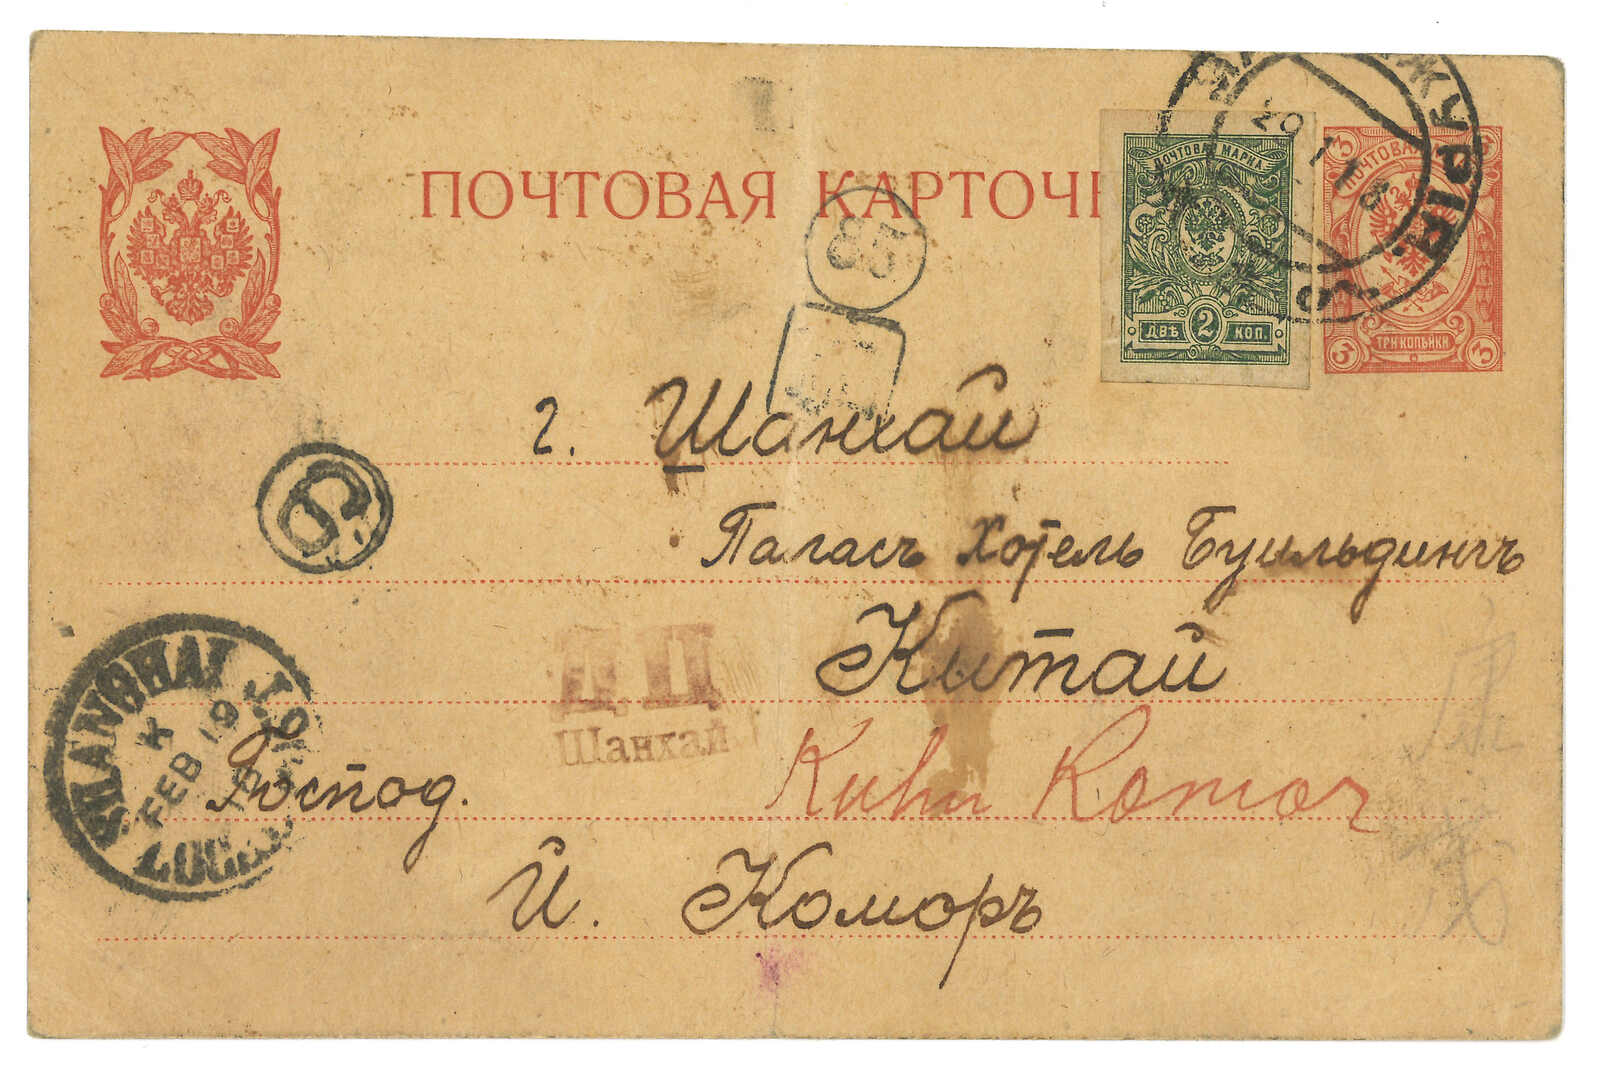 ПОЧТОВАЯ КАРТОЧ
ПОЧТОВАЯ МАРКА
ДВѢ 2 КОП.
ПОЧТОВАЯ
3 ТРИ КОПѢЙКИ 3
85
г. Шанхай
Паласъ Хотель Буильдингъ
Китай
6
ДЦ
Шанхай
SHANGHAI
LOCAL POST
K
FEB 19
Господ.
Kuhn Komor
И. Коморъ